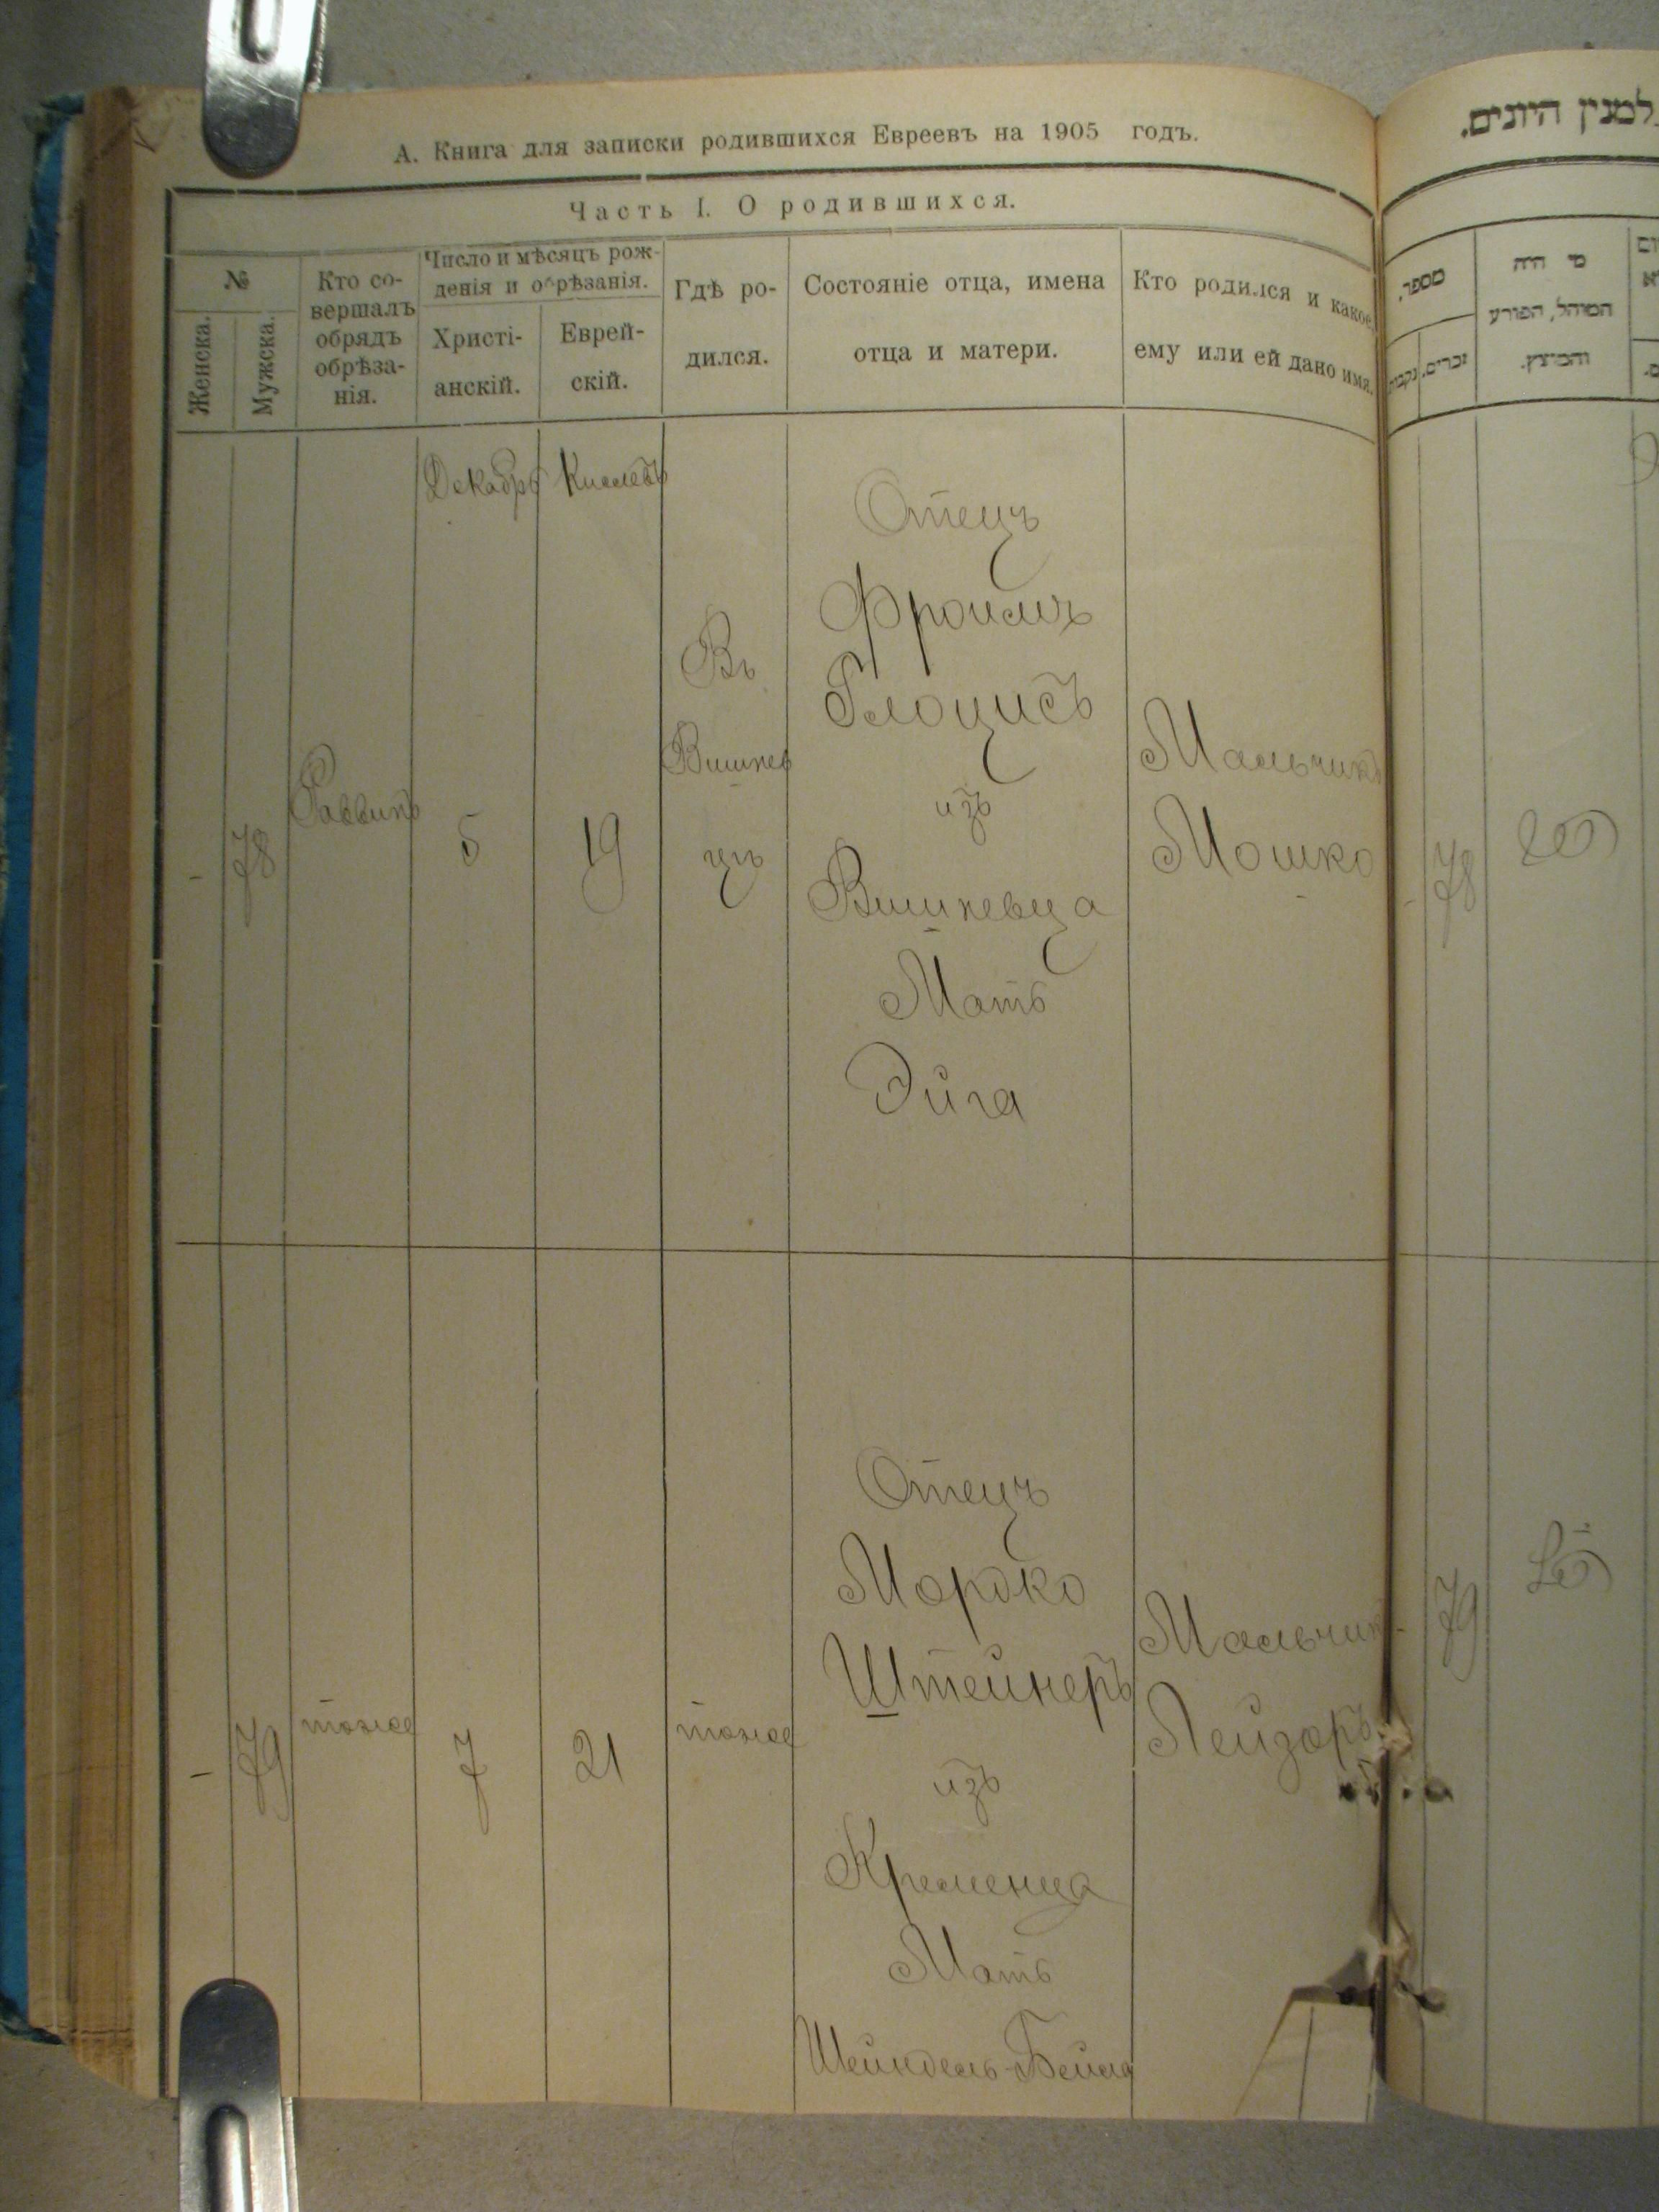 А. Книга для записки родившихся Евреевъ на 1905 годъ.
Часть I. О родившихся.
№
Женска.
Мужска.
Кто со-
вершалъ
обрядъ
обрѣза-
нія.
Число и мѣсяцъ рож-
денія и обрѣзанія.
Христі-
анскій.
Еврей-
скій.
Гдѣ ро-
дился.
Состояніе отца, имена
отца и матери.
Кто родился и какое
ему или ей дано имя.
Декабрь
Кислевъ
-
78
Раввинъ
5
19
Въ
Вишнев
цѣ
Отецъ
Фроимъ
из
Вишневца
Мать
Эйга
Мальчикъ
Мошко
-
79
тоже
7
21
тоже
Отецъ
Мордко
Штейнеръ
изъ
Кременца
Мать
Шейндель-Бейла
Мальчик
Лейзоръ
למנין היונים.
מספר.
זכרים.
מי היה
המוהל, הפורע
והמוצץ.
78
79